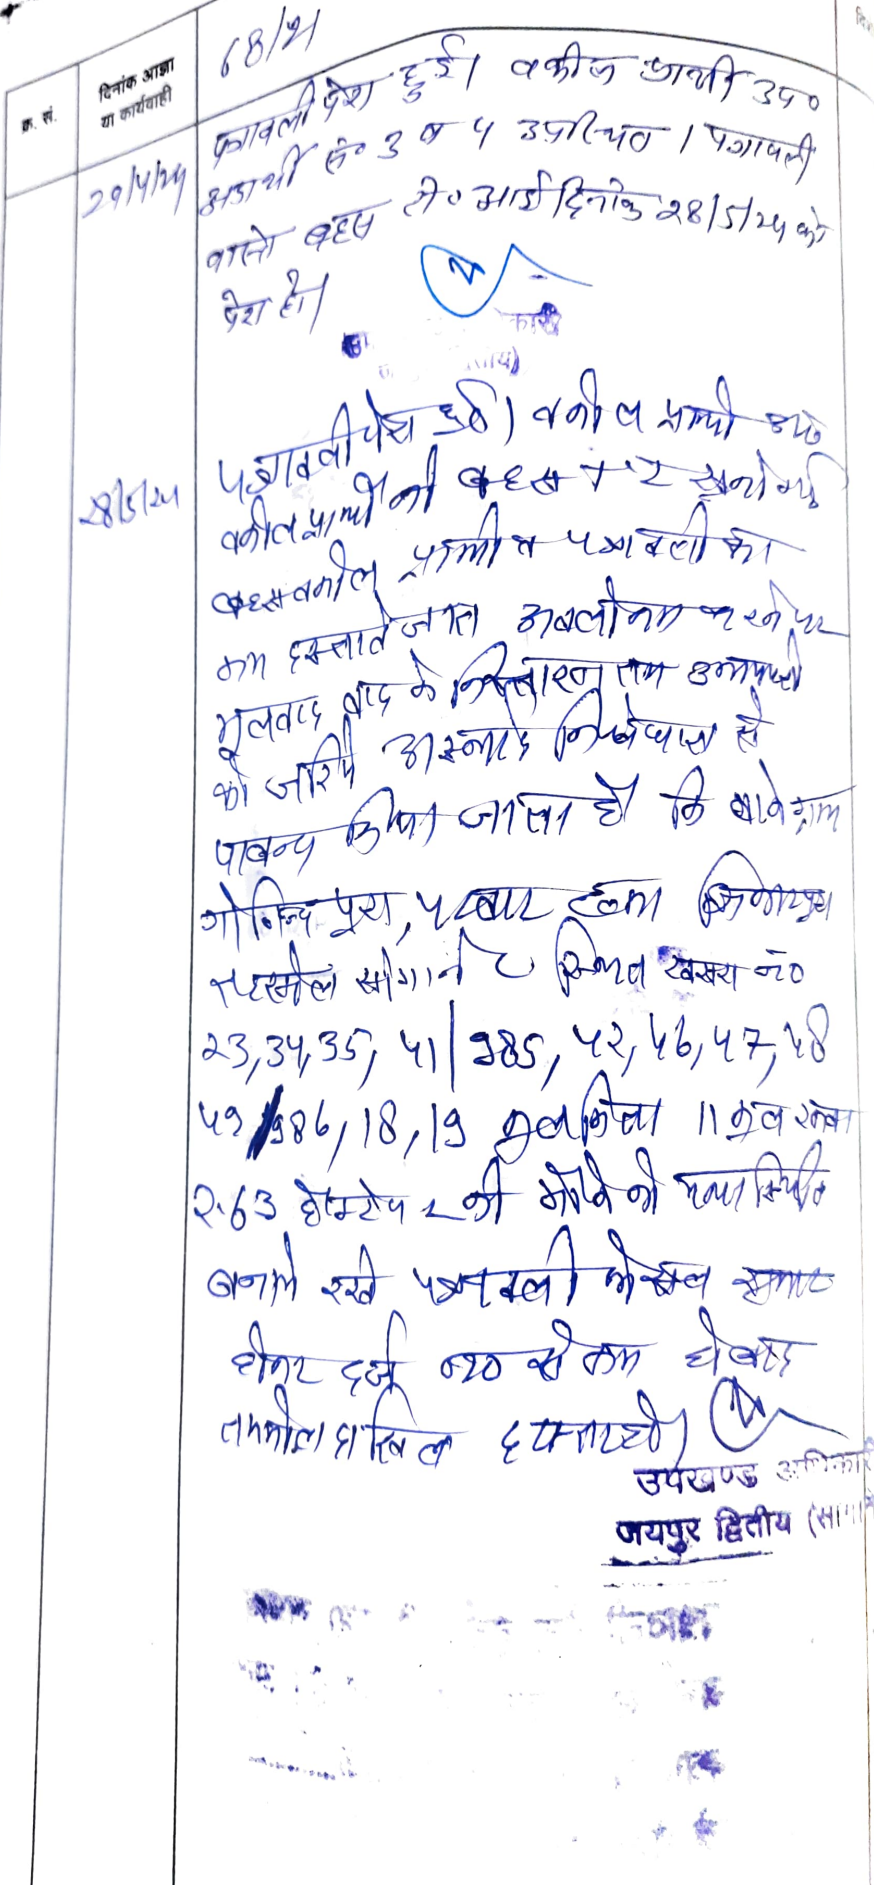 68/21
क्र. सं.
दिनांक आज्ञा
या कार्यवाही
29/4/24
पत्रावली पेश हुई। वकील प्रार्थी उप०
अप्रार्थी सं० 3 व 4 उपस्थित। पत्रावली
वास्ते बहस टी० आई दिनांक 28/5/24 को
पेश हो।
28/5/24
पत्रावली पेश हुई। वकील प्रार्थी उप०
वकील प्रार्थी की बहस सुनी गई
बहस वकील प्रार्थी व पत्रावली का
मय दस्तावेजात अवलोकन करने पर
मूलवाद वाद के निस्तारण तक अप्रार्थी
को जरिये अस्थाई निषेधाज्ञा से
पाबन्द किया जाता है कि वाके ग्राम
गोविन्दपुरा, पटवार हल्का
तहसील सांगानेर स्थित खसरा नं०
23, 34, 35, 41/985, 42, 46, 47, 48
49/986, 18, 19 कुल किता 11 कुल रकबा
2.63 हैक्टेयर की मौके की यथास्थिति
बनाये रखे पत्रावली फैसल शुमार
होकर दर्ज नं० से कम हो बाद
तकमील दाखिल दफ्तर हो।
उपखण्ड अधिकारी
जयपुर द्वितीय (सांगाने